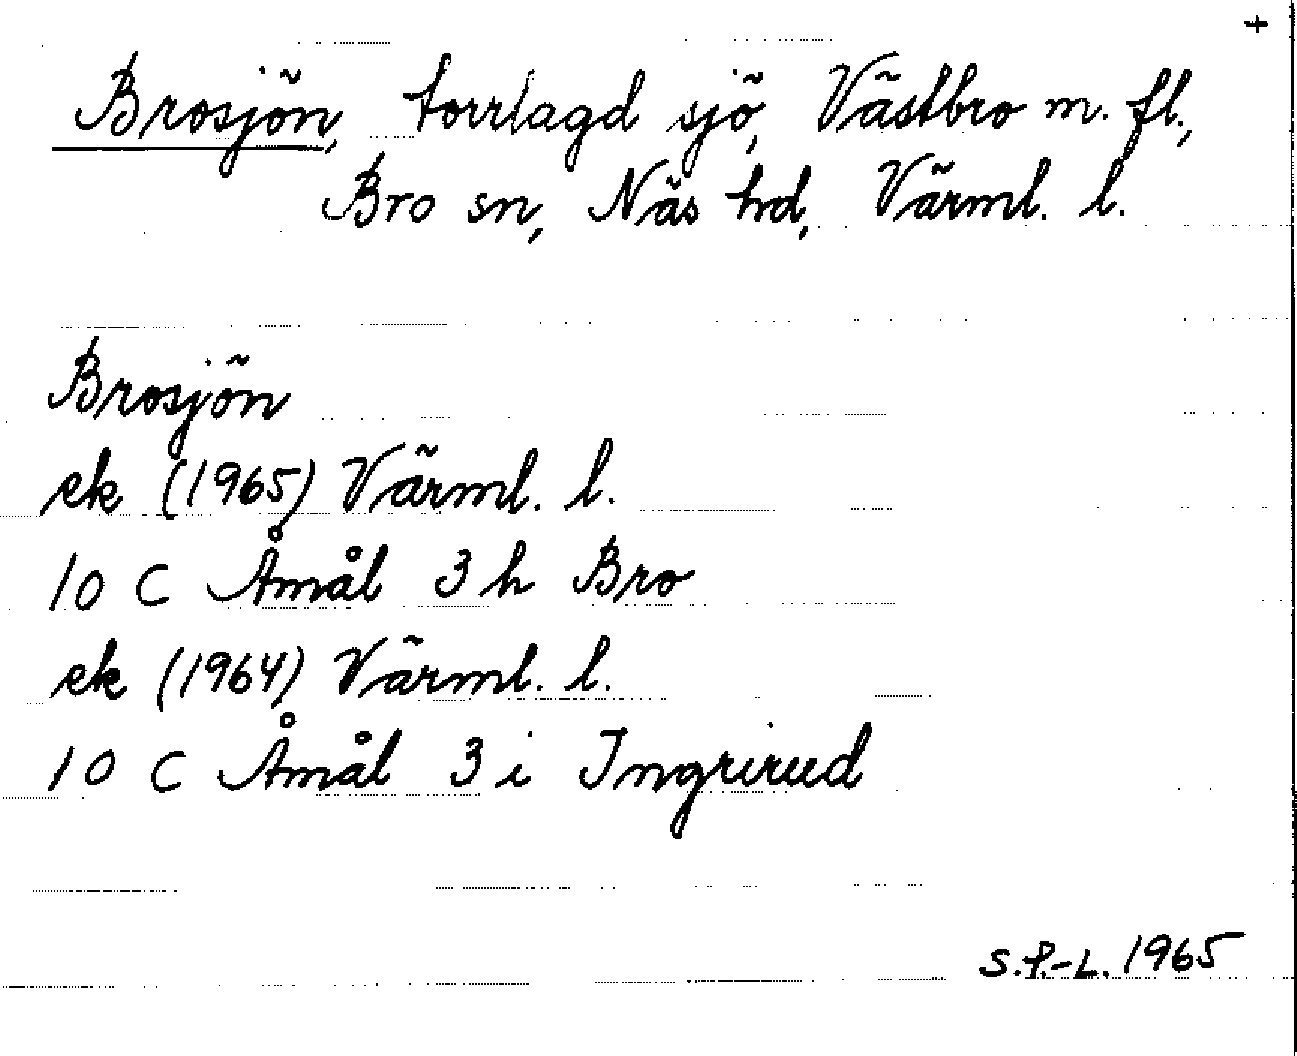 +
Brosjön, torrlagd sjö, Västbro m. fl.,
Bro sn, Näs hd, Värml. l.
Brosjön
ek (1965) Värml. l.
10 C Åmål 3 h Bro
ek (1964) Värml. l.
10 C Åmål 3 i Ingrirud
S.P.-L. 1965